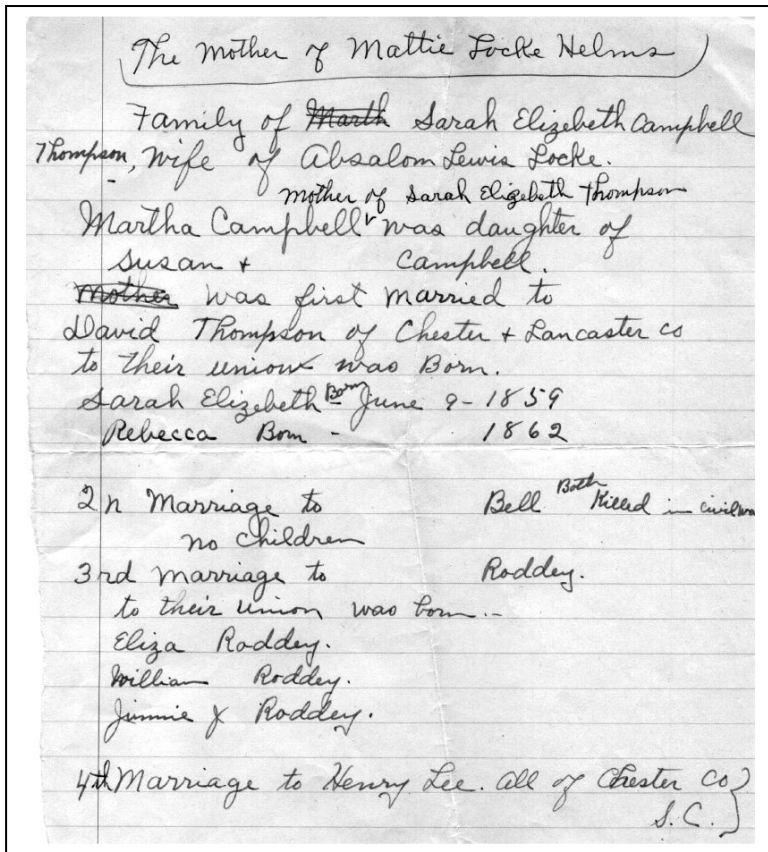 The Mother of Mattie Locke Helms
Family of Marth Sarah Elizebeth Campbell
Thompson, Wife of Absalom Lewis Locke.
mother of Sarah Elizebeth Thompson
Martha Campbell was daughter of
Susan + Campbell.
Mother was first married to
David Thompson of Chester + Lancaster co
to their union was Born.
Sarah Elizebeth Born June 9 - 1859
Rebecca Born - 1862
2n Marriage to Bell Both Killed in civil war
no Children
3rd marriage to Roddey.
to their union was born -
Eliza Roddey.
William Roddey.
Jimmie Roddey.
4th Marriage to Henry Lee. all of Chester Co
S.C.